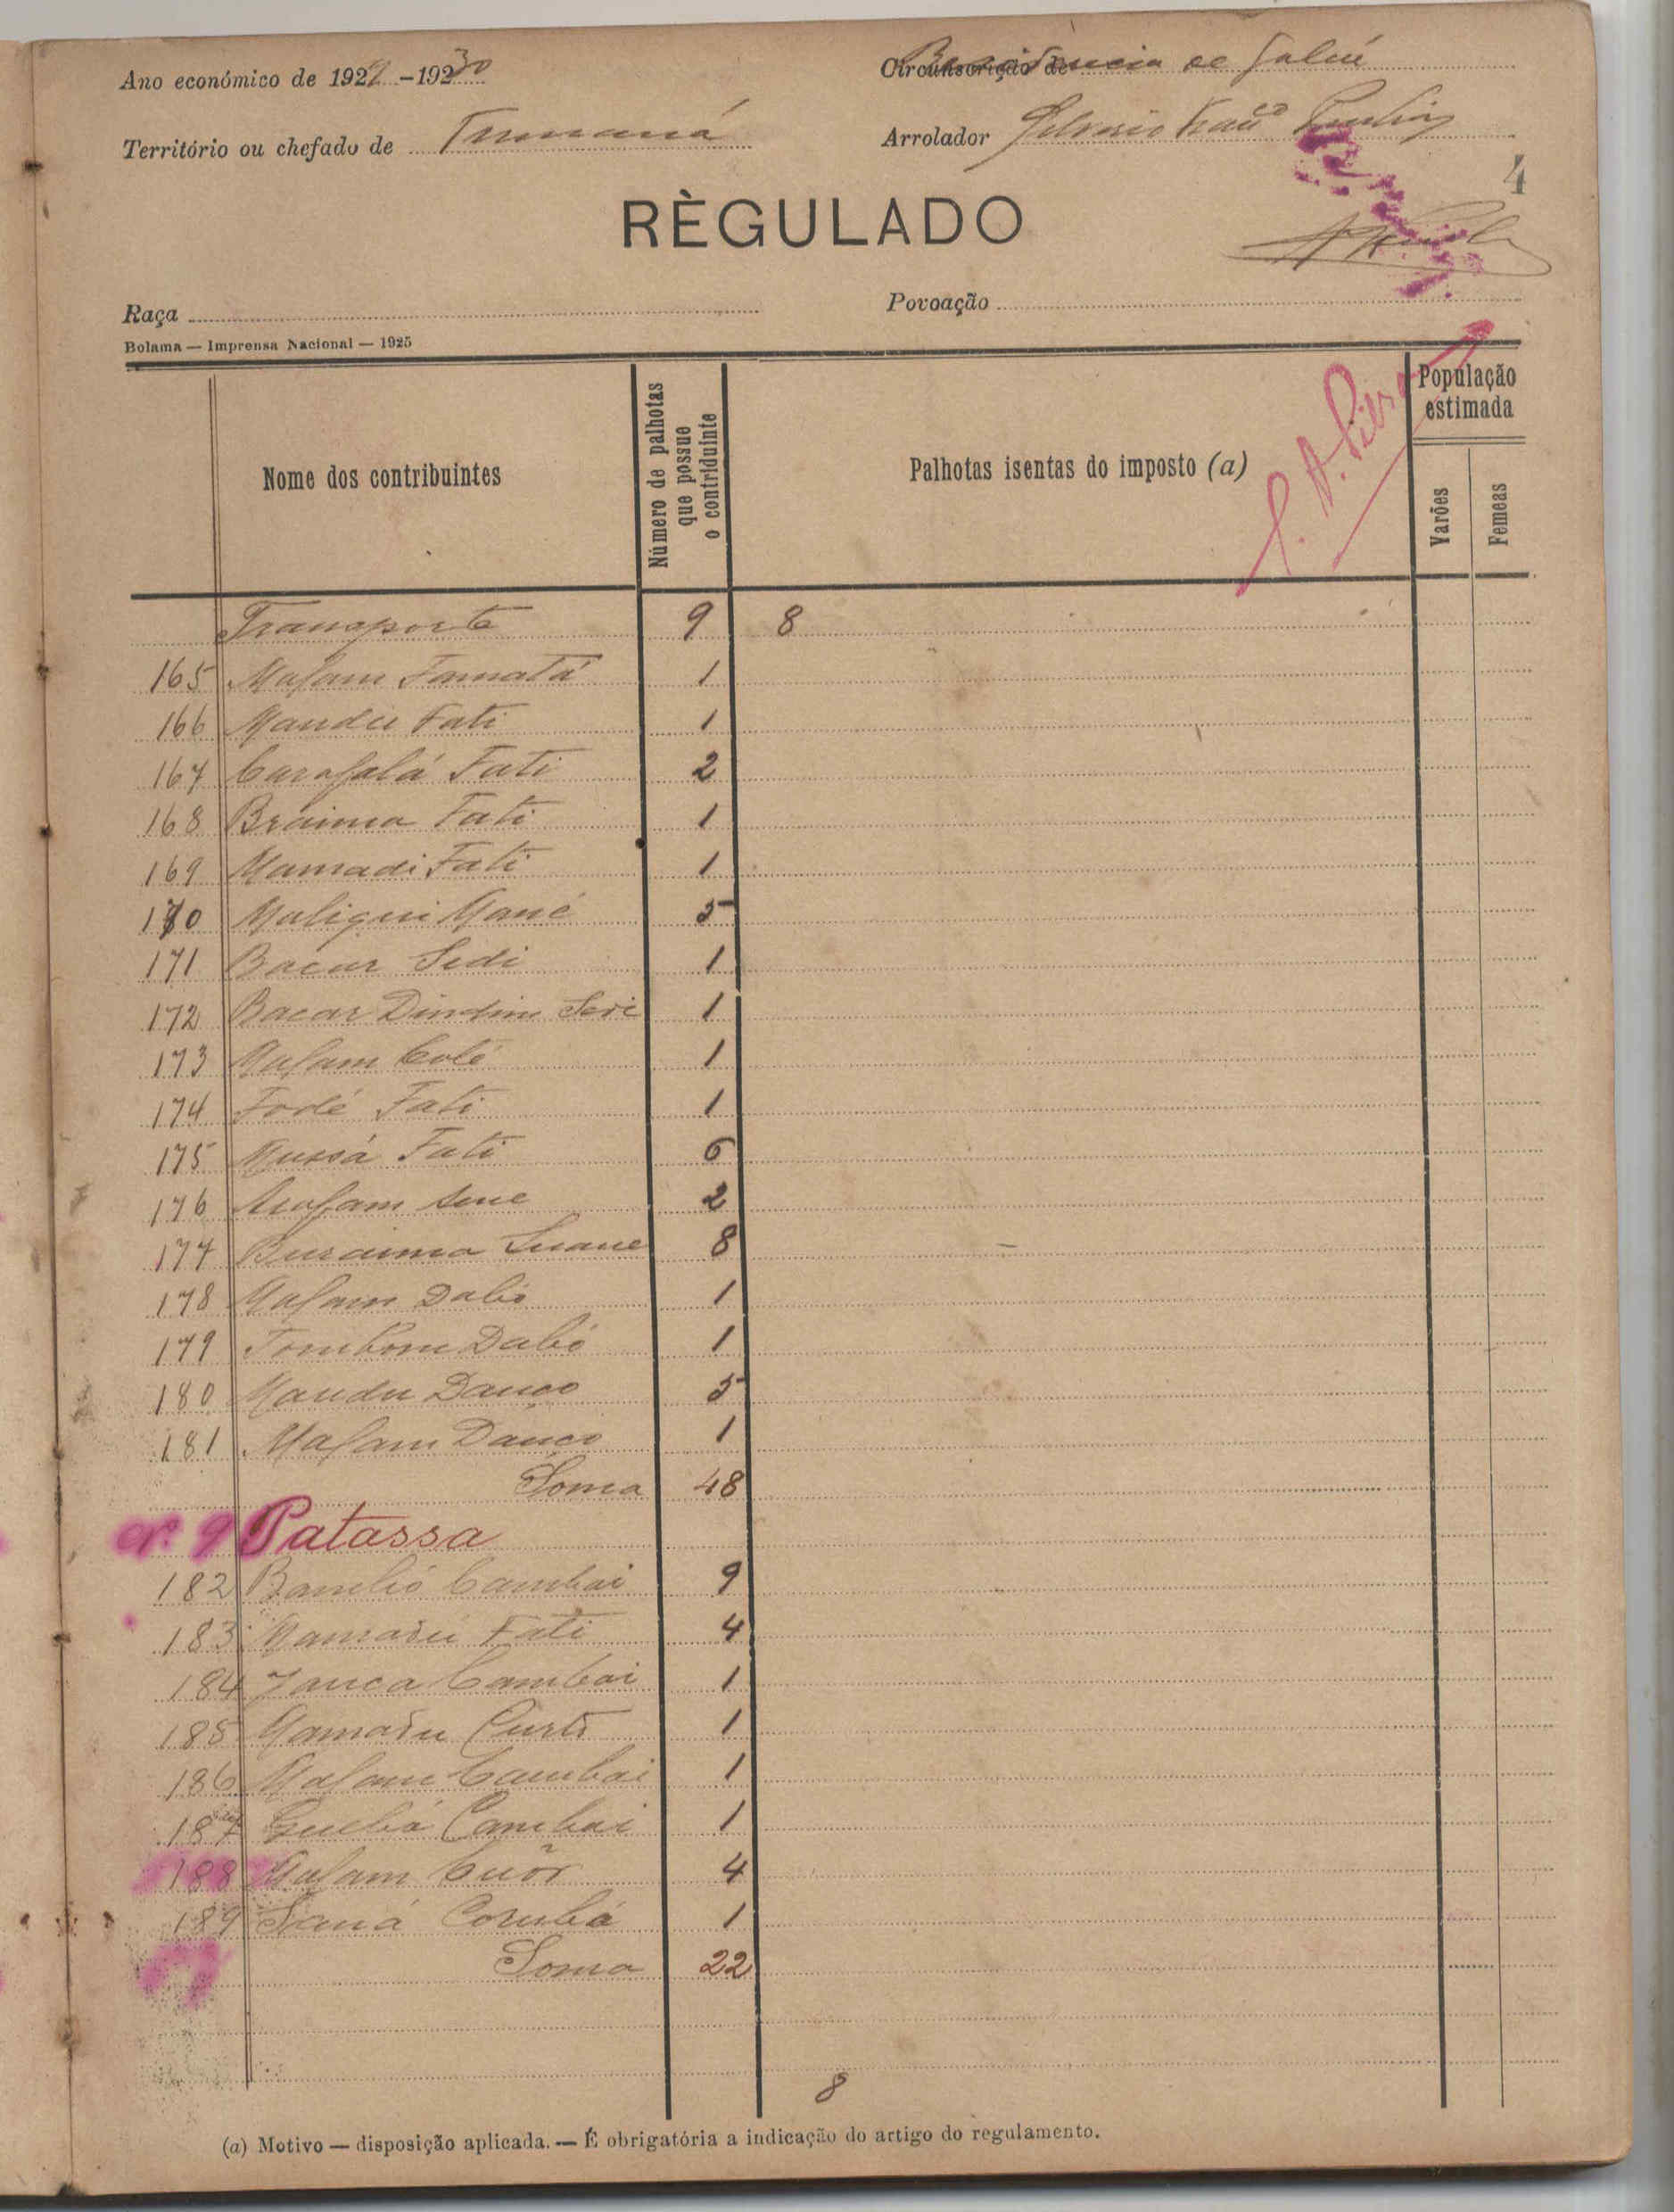 Ano económico de 1929-1930
Circunscrição de
Território ou chefado de
Arrolador
4
RÈGULADO
Raça
Povoação
Bolama — Imprensa Nacional — 1925
Nome dos contribuintes
Número de palhotas que possue o contriduinte
Palhotas isentas do imposto (a)
População estimada
Varões
Femeas
Transporte 9 8
165 Malam 1
166 Mandu Fati 1
167 Fati 2
168 Braima Fati 1
169 Mamadi Fati 1
170 Maliqui Mané 5
171 Bacar Sedi 1
172 Bacar Dindim 1
173 Malam 1
174 Fodé Fati 1
175 Mussá Fati 6
176 Malam 2
177 Buraima 8
178 Malam Dabó 1
179 Dabó 1
180 Mandu Danço 5
181 Malam Danço 1
Soma 48
nº. 9 Patassa
182 Cambai 9
183 Mamadú Fati 4
184 Janca Cambai 1
185 Mamadu 1
186 Malam Cambai 1
187 Cambai 1
188 Malam 4
189 Saná 1
Soma 22
8
(a) Motivo — disposição aplicada. — É obrigatória a indicação do artigo do regulamento.